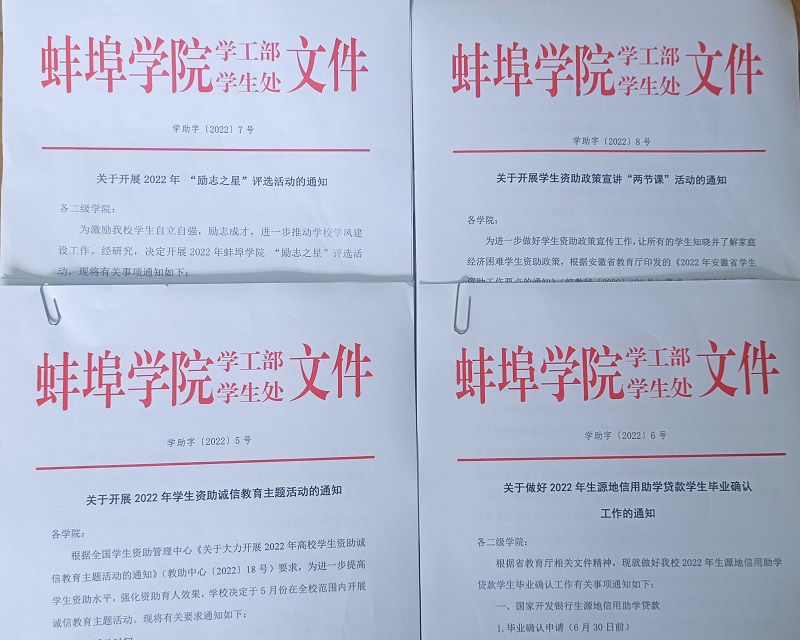 蚌埠学院学工部学生处文件
学助字〔2022〕7号
关于开展2022年 “励志之星”评选活动的通知
各二级学院：
为激励我校学生自立自强，励志成才，进一步推动学校学风建
设工作。经研究，决定开展2022年蚌埠学院 “励志之星”评选活
动，现将有关事项通知如下：
蚌埠学院学工部学生处文件
学助字〔2022〕8号
关于开展学生资助政策宣讲“两节课”活动的通知
各学院：
为进一步做好学生资助政策宣传工作，让所有的学生知晓并了解家庭
经济困难学生资助政策，根据安徽省教育厅印发的《2022年安徽省学生
蚌埠学院学工部学生处文件
学助字〔2022〕5号
关于开展2022年学生资助诚信教育主题活动的通知
各学院：
根据全国学生资助管理中心《关于大力开展2022年高校学生资助诚
信教育主题活动的通知》（教助中心〔2022〕18号）要求，为进一步提高
学生资助水平，强化资助育人效果，学校决定于5月份在全校范围内开展
诚信教育主题活动。现将有关要求通知如下：
蚌埠学院学工部学生处文件
学助字〔2022〕6号
关于做好2022年生源地信用助学贷款学生毕业确认
工作的通知
各二级学院：
根据省教育厅相关文件精神，现就做好我校2022年生源地信用助学
贷款学生毕业确认工作有关事项通知如下：
一、国家开发银行生源地信用助学贷款
1.毕业确认申请（6月30日前）